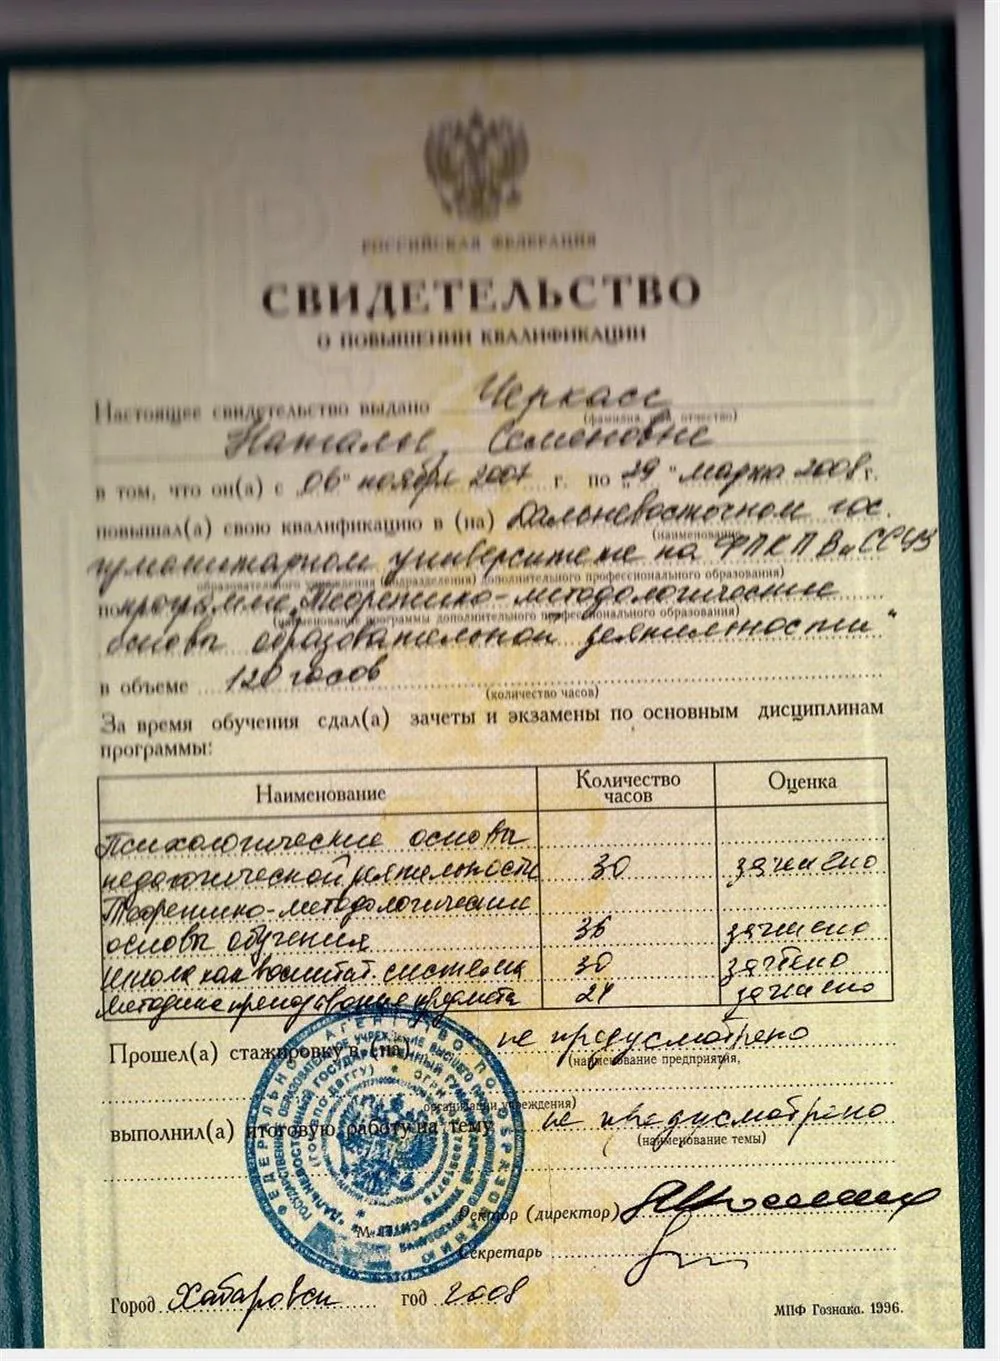 РОССИЙСКАЯ ФЕДЕРАЦИЯ
СВИДЕТЕЛЬСТВО
О ПОВЫШЕНИИ КВАЛИФИКАЦИИ
Настоящее свидетельство выдано Черкасс
(фамилия, имя, отчество)
Наталье Семеновне
в том, что он(а) с „06" ноября 2007 г. по „29" марта 2008 г.
повышал(а) свою квалификацию в (на) Дальневосточном гос.
(наименование
гуманитарном университете на ФПКПВиССУЗ
образовательного учреждения (подразделения) дополнительного профессионального образования)
по программе „Теоретико-методологические
(наименование программы дополнительного профессионального образования)
основы образовательной деятельности"
в объеме 120 часов
(количество часов)
За время обучения сдал(а) зачеты и экзамены по основным дисциплинам
программы:
Наименование Количество часов Оценка
Психологические основы
педагогической деятельности 30 зачтено
Теоретико-методологические
основы обучения 36 зачтено
Школа как воспитат. система 30 зачтено
Методика преподавания предмета 24 зачтено
Прошел(а) стажировку в (на) не предусмотрено
(наименование предприятия,
организации, учреждения)
выполнил(а) итоговую работу на тему не предусмотрено
(наименование темы)
ФЕДЕРАЛЬНОЕ АГЕНТСТВО ПО ОБРАЗОВАНИЮ
Ректор (директор)
Секретарь
Город Хабаровск год 2008
МПФ Гознака. 1996.